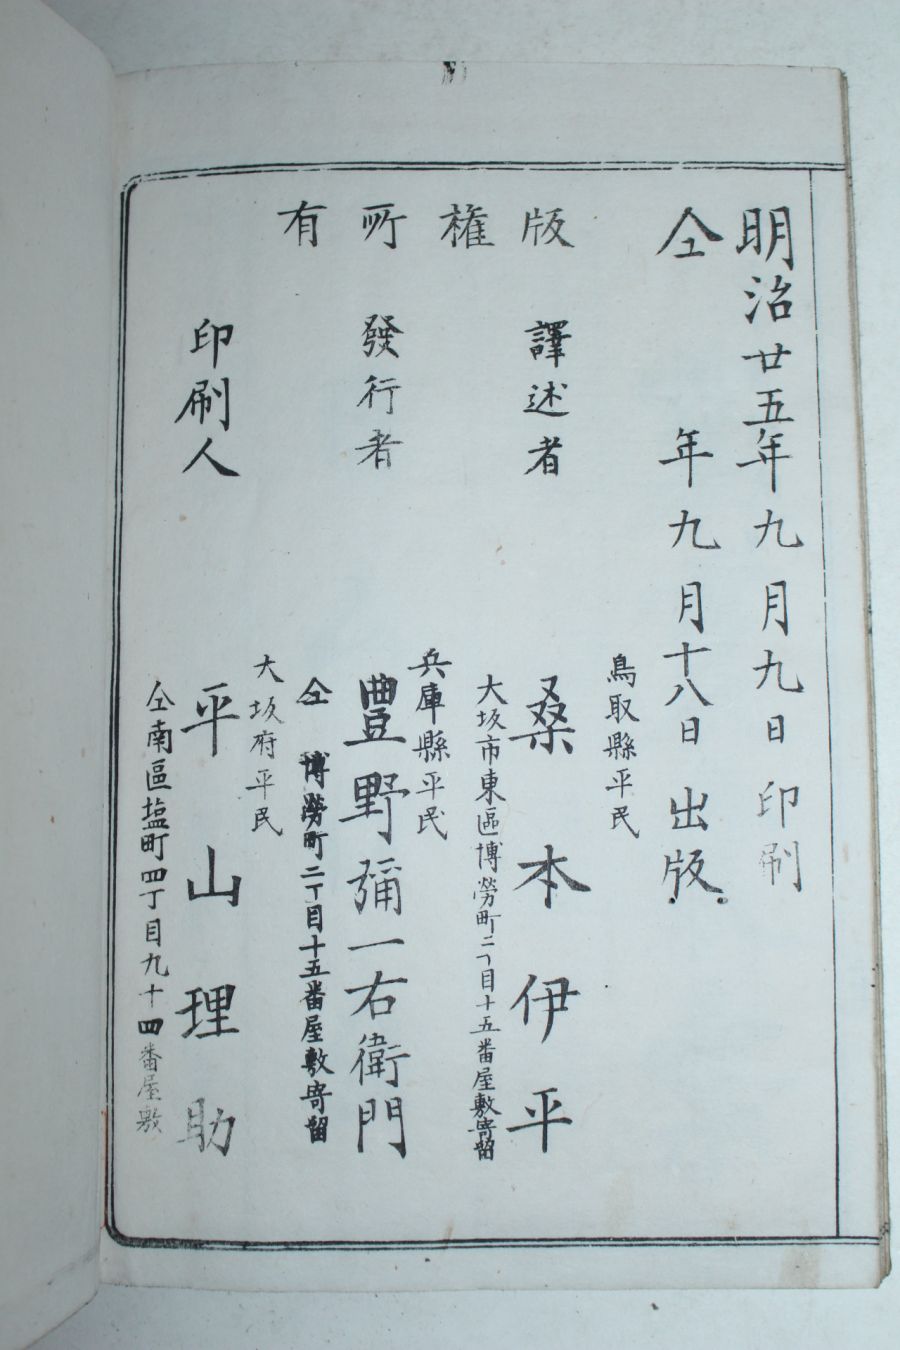 明治廿五年九月九日印刷
仝年九月十八日出版
版權所有
鳥取縣平民
譯述者 桑本伊平
大坂市東區博勞町二丁目十五番屋敷寄留
兵庫縣平民
發行者 豊野彌一右衛門
仝 博勞町二丁目十五番屋敷寄留
大坂府平民
印刷人 平山理助
仝南區塩町四丁目九十四番屋敷